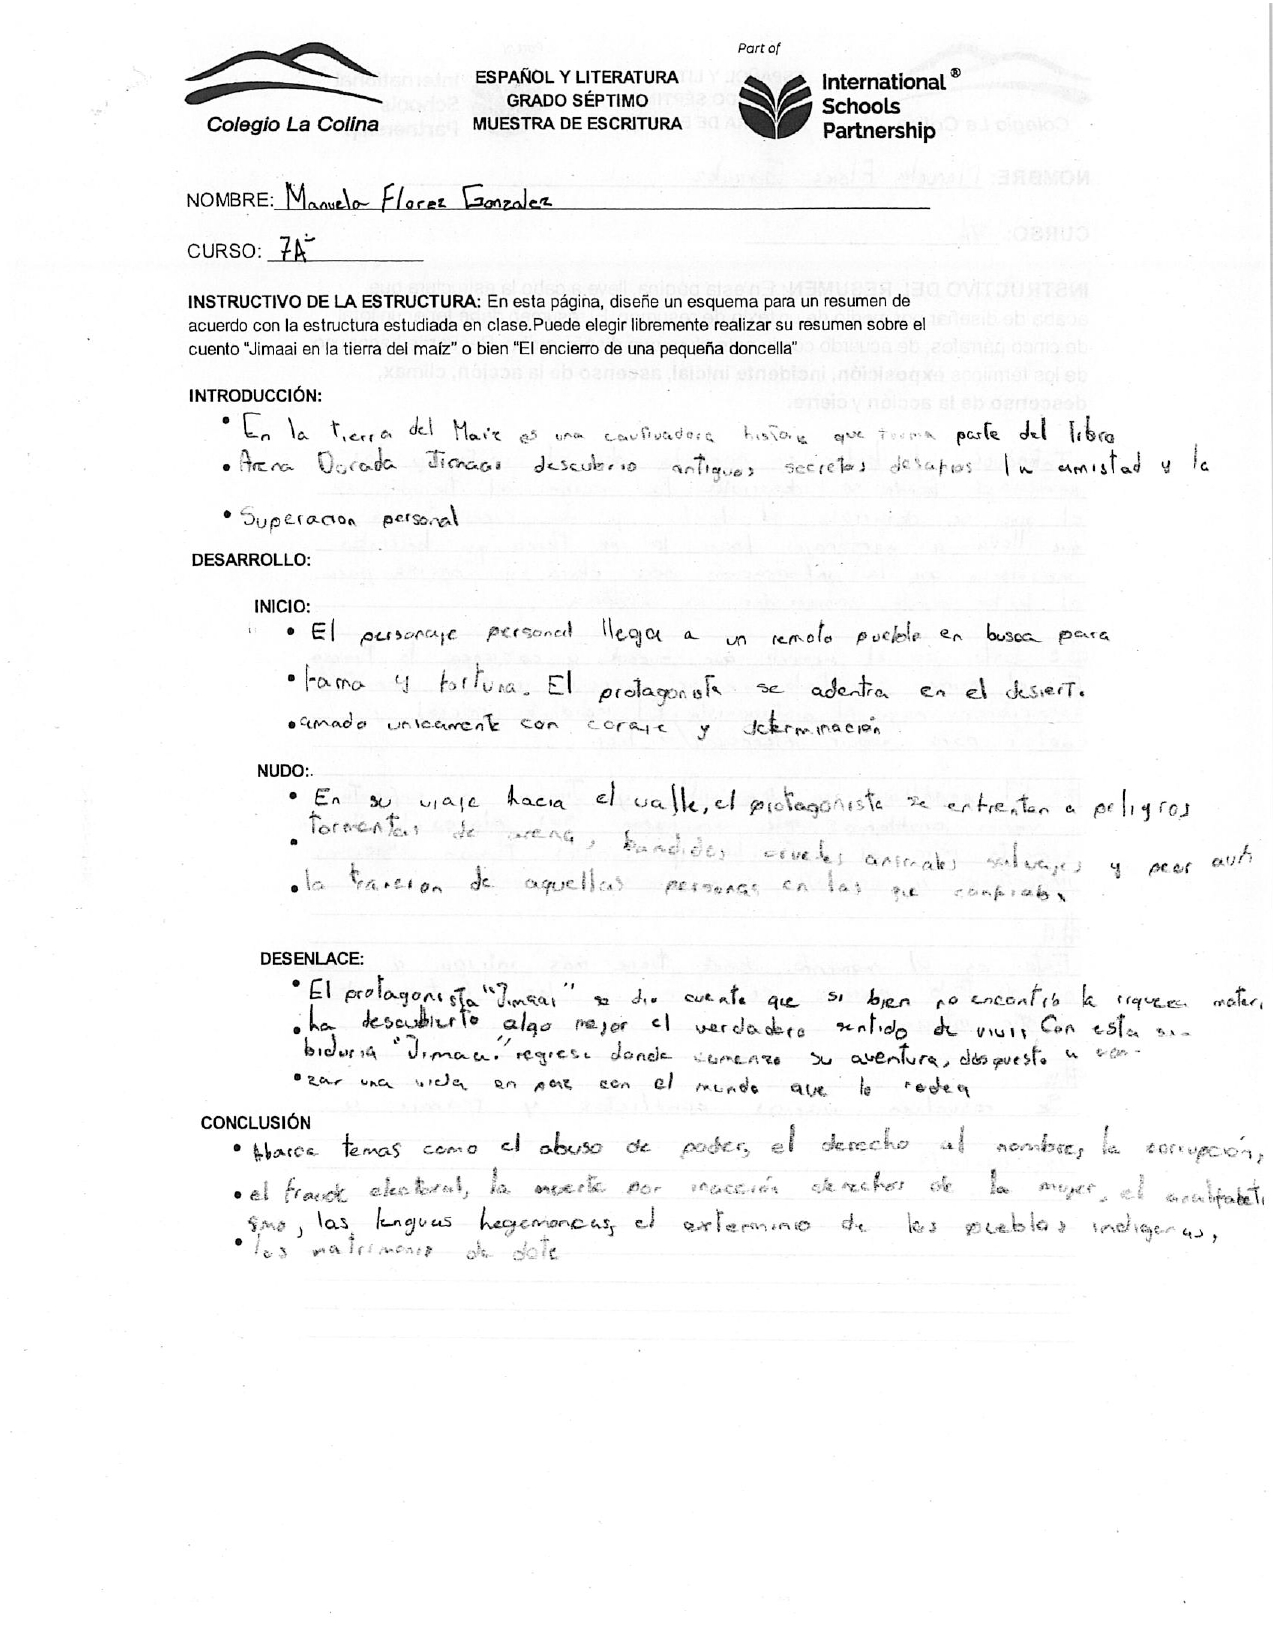 Part of
ESPAÑOL Y LITERATURA
GRADO SÉPTIMO
MUESTRA DE ESCRITURA
Colegio La Colina
International ®
Schools
Partnership
NOMBRE: Manuela Florez Gonzalez
CURSO: 7A
INSTRUCTIVO DE LA ESTRUCTURA: En esta página, diseñe un esquema para un resumen de
acuerdo con la estructura estudiada en clase.Puede elegir libremente realizar su resumen sobre el
cuento “Jimaai en la tierra del maíz” o bien “El encierro de una pequeña doncella”
INTRODUCCIÓN:
• En la tierra del Maiz es una cautivadora historia que forma parte del libro
• Arena Dorada Jimaai descubrio antiguos secretos desafios la amistad y la
• Superacion personal
DESARROLLO:
INICIO:
• El personaje personal llega a un remoto pueblo en busca para
• fama y fortuna. El protagonista se adentra en el desierto
• amado unicamente con coraje y determinación
NUDO:.
• En su viaje hacia el valle, el protagonista se enfrentan a peligros
• tormentas de arena, bandidos crueles animales salvajes y peor aun
• la traicion de aquellas personas en las que confiaba
DESENLACE:
• El protagonista "Jimaai" se dio cuenta que si bien no encontró la riqueza mater,
• ha descubierto algo mejor el verdadero sentido de vivir Con esta sa-
biduria "Jimaai" regresa donde comenzo su aventura, dispuesto a
• zar una vida en paz con el mundo que lo rodea
CONCLUSIÓN
• Abarca temas como el abuso de poder, el derecho al nombre, la corrupción,
• el fraude electoral, la muerte por inacción derechos de la mujer, el analfabeti
smo, las lenguas hegemoncas, el exterminio de los pueblos indigenas,
• los matrimonis de dote